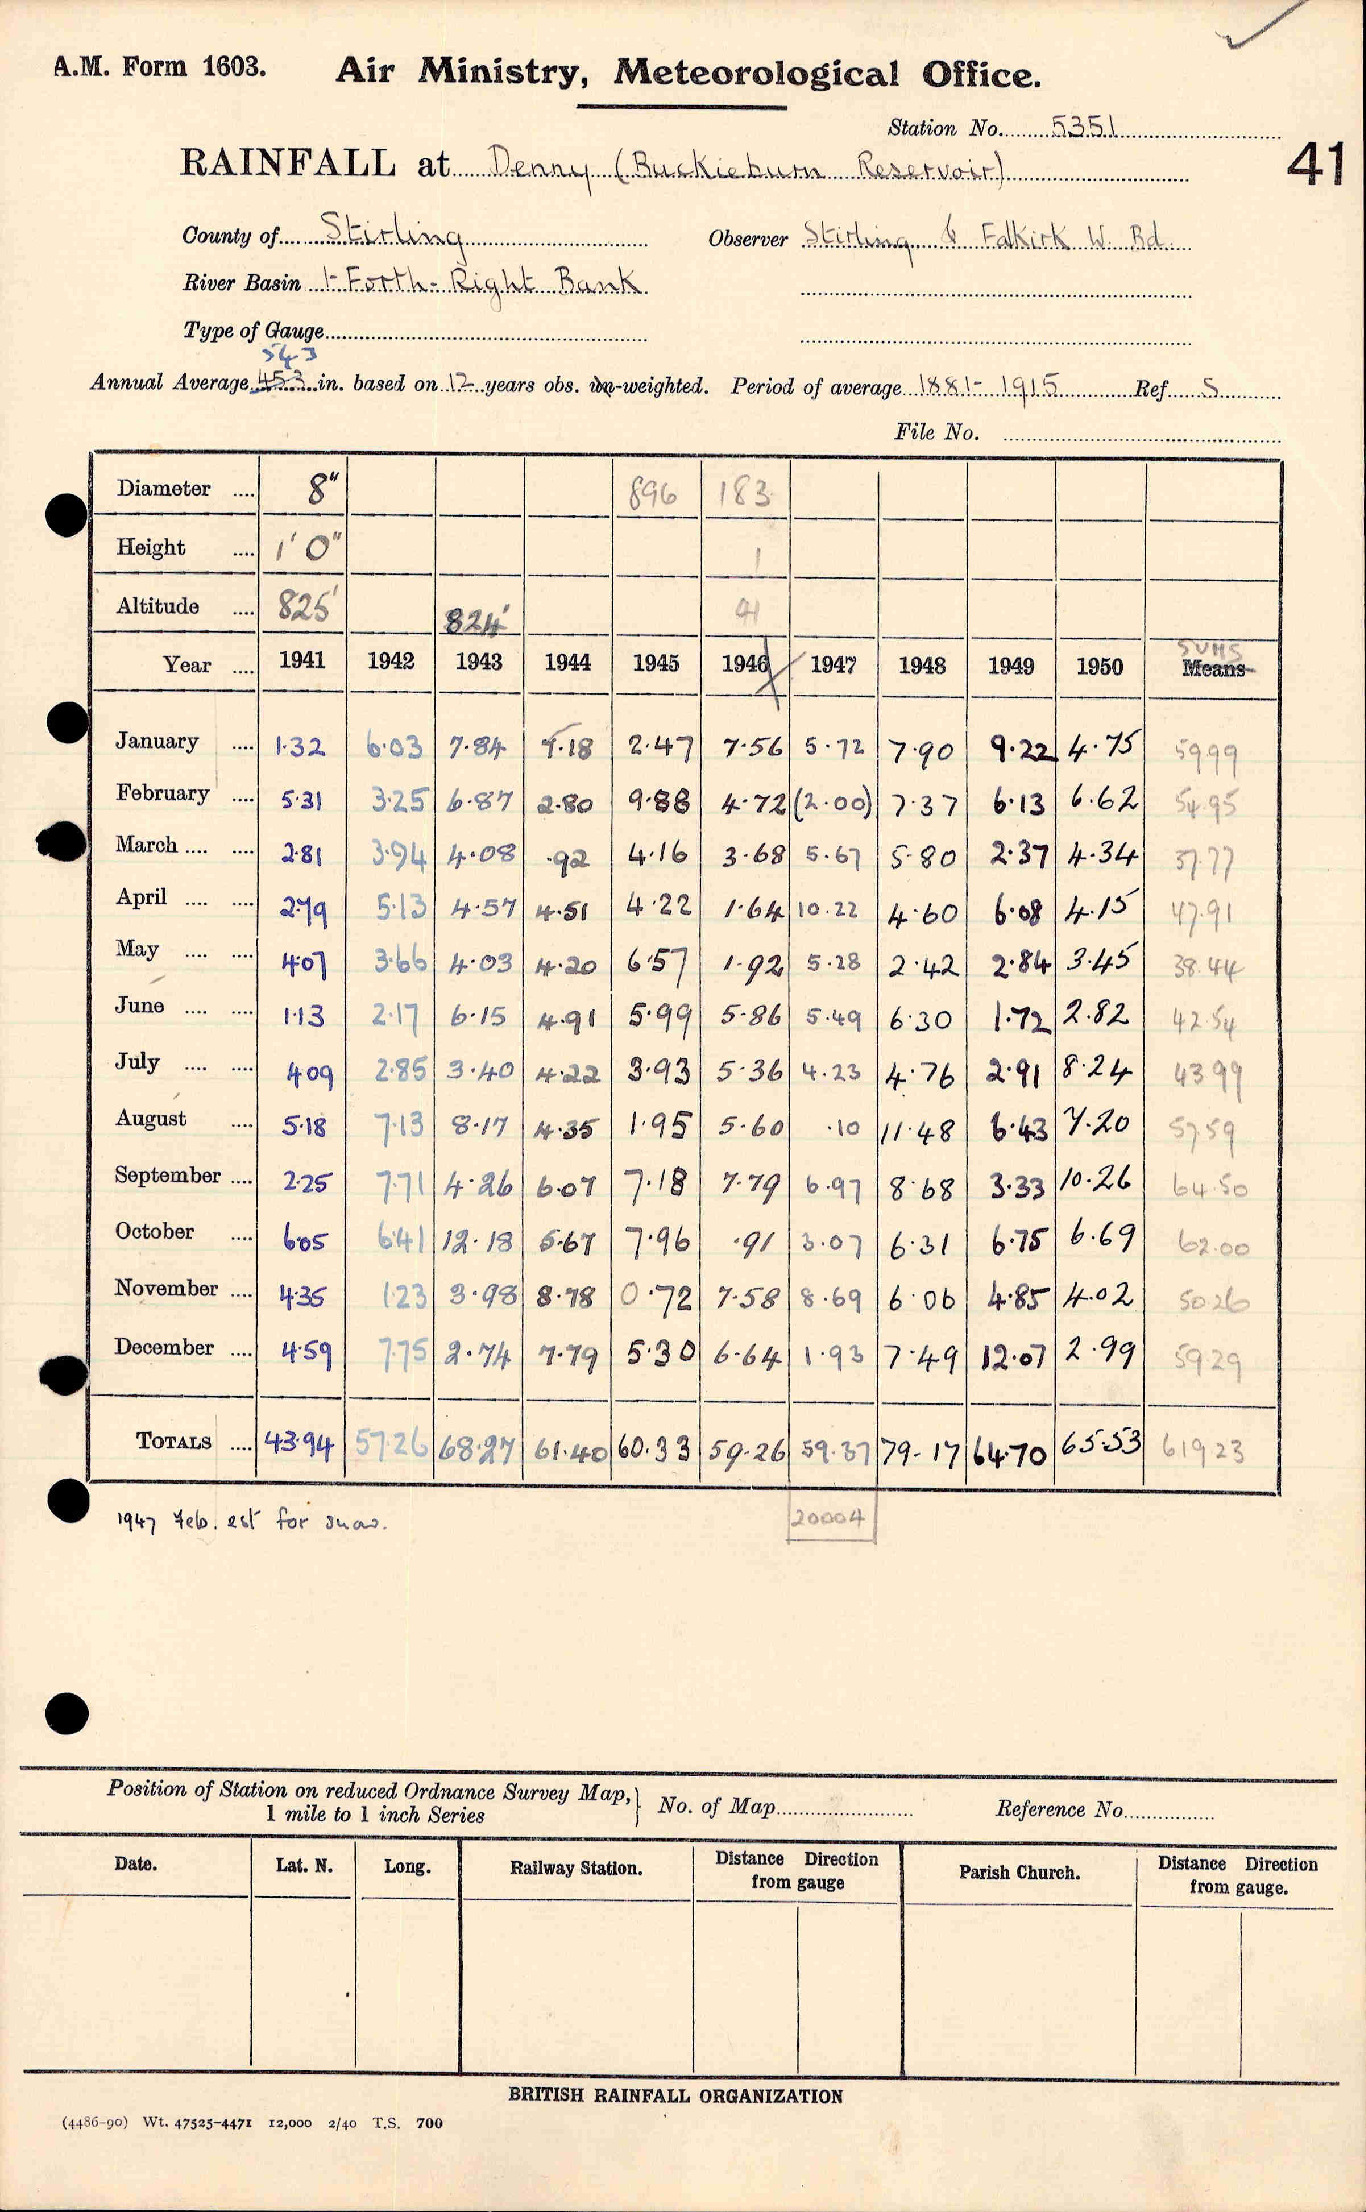 A.M. Form 1603. Air Ministry, Meteorological Office.
Station No. 5351
41
RAINFALL at Denny (Buckieburn Reservoir)
County of Stirling Observer Stirling & Falkirk W. Bd.
River Basin Forth - Right Bank
Type of Gauge
543
Annual Average 453 in. based on 12 years obs. un-weighted. Period of average 1881 - 1915 Ref. S
File No.
Diameter .... 8" 896 183
Height .... 1' 0" 1
Altitude .... 825' 824' 41
SUMS
Year .... 1941 1942 1943 1944 1945 1946 1947 1948 1949 1950 Means
January .... 1.32 6.03 7.84 7.18 2.47 7.56 5.72 7.90 9.22 4.75 59.99
February .... 5.31 3.25 6.87 2.80 9.88 4.72 (2.00) 7.37 6.13 6.62 54.95
March .... .... 2.81 3.94 4.08 .92 4.16 3.68 5.67 5.80 2.37 4.34 37.77
April .... .... 2.79 5.13 4.57 4.51 4.22 1.64 10.22 4.60 6.08 4.15 47.91
May .... .... 4.07 3.66 4.03 4.20 6.57 1.92 5.28 2.42 2.84 3.45 38.44
June .... .... 1.13 2.17 6.15 4.91 5.99 5.86 5.49 6.30 1.72 2.82 42.54
July .... .... 4.09 2.85 3.40 4.22 3.93 5.36 4.23 4.76 2.91 8.24 43.99
August .... 5.18 7.13 8.17 4.35 1.95 5.60 .10 11.48 6.43 7.20 57.59
September .... 2.25 7.71 4.26 6.07 7.18 7.79 6.97 8.68 3.33 10.26 64.50
October .... 6.05 6.41 12.18 5.67 7.96 .91 3.07 6.31 6.75 6.69 62.00
November .... 4.35 1.23 3.98 8.78 0.72 7.58 8.69 6.06 4.85 4.02 50.26
December .... 4.59 7.75 2.74 7.79 5.30 6.64 1.93 7.49 12.07 2.99 59.29
TOTALS .... 43.94 57.26 68.27 61.40 60.33 59.26 59.37 79.17 64.70 65.53 619.23
1947 Feb. est for snow. 20004
Position of Station on reduced Ordnance Survey Map,
1 mile to 1 inch Series } No. of Map Reference No.
Date. Lat. N. Long. Railway Station. Distance Direction from gauge Parish Church. Distance Direction from gauge.
BRITISH RAINFALL ORGANIZATION
(4486-90) Wt. 47525-4471 12,000 2/40 T.S. 700